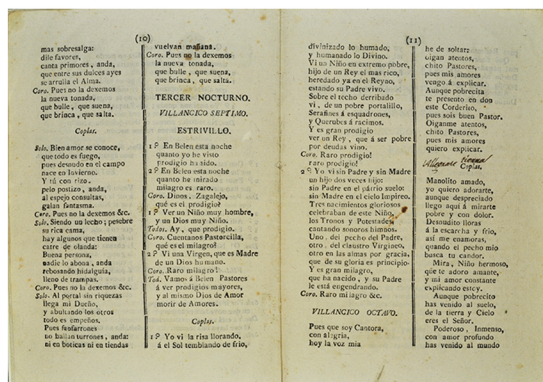 (10)
mas sobresalga:
dile favores,
canta primores, anda,
que entre sus dulces ayes
se arrulla el Alma.
Coro. Pues no la dexemos
la nueva tonada,
que bulle, que suena,
que brinca, que salta.
Coplas.
Solo. Bien amor se conoce,
que todo es fuego,
pues desnudo en el campo
nace en Invierno.
Y tú con rizo,
pelo postizo, anda,
al espejo consultas,
galan fantasma.
Coro. Pues no la dexemos &c.
Solo. Siendo un lecho; pesebre
su rica cama,
hay algunos que tienen
catre de olanda:
Buena persona,
nadie lo abona, anda
rebosando hidalguía,
lleno de trampas.
Coro. Pues no la dexemos &c.
Solo. Al portal sin riquezas
llega mi Dueño,
y abultando los otros
todo es empeños.
Pues fanfarrones
no hallan turrones, anda:
ni en boticas ni en tiendas
vuelvan mañana.
Coro. Pues no la dexemos
la nueva tonada,
que bulle, que suena,
que brinca, que salta.
TERCER NOCTURNO.
VILLANCICO SEPTIMO.
ESTRIVILLO.
1º En Belen esta noche
quanto yo he visto
prodigio ha sido.
2º En Belen esta noche
quanto he mirado
milagro es raro.
Coro. Dinos, Zagalejo,
qué es el prodigio?
1º Ver un Niño muy hombre,
y un Dios muy Niño.
Todos. Ay, que prodigio.
Coro. Cuentanos Pastorcilla,
qué es el milagro?
2º Vi una Virgen, que es Madre
de un Dios humano.
Coro. Raro milagro!
Tod. Vamos á Belen Pastores
á ver prodigios mayores,
y al mismo Dios de Amor
morir de Amores.
Coplas.
1º Yo vi la risa llorando,
á el Sol temblando de frio,
(11)
divinizado lo humado,
y humanado lo Divino.
Vi un Niño en extremo pobre,
hijo de un Rey el mas rico,
heredado ya en el Reyno,
estando su Padre vivo.
Sobre el techo derribado
vi, de un pobre portalillo,
Serafines á esquadrones,
y Querubes á racimos.
Y es gran prodigio
ver un Rey, que á ser pobre
por deudas vino.
Coro. Raro prodigio!
raro prodigio!
2º Yo vi sin Padre y sin Madre
un hijo dos veces hijo:
sin Padre en el patrio suelo:
sin Madre en el cielo Impireo.
Tres nacimientos gloriosos
celebraban de este Niño,
los Tronos y Potestades
cantando sonoros himnos.
Uno, del pecho del Padre,
otro, del claustro Virgineo,
otro en las almas por gracia,
que de su gloria es principio.
Y es gran milagro,
que ha nacido, y su Padre
le está engendrando.
Coro. Raro milagro &c.
VILLANCICO OCTAVO.
Pues que soy Cantora,
con alegria,
hoy la voz mia
he de soltar:
oigan atentos,
chito Pastores,
pues mis amores
vengo á explicar.
Aunque pobrecita
te presento en don
este Corderito,
pues sois buen Pastor.
Oiganme atentos,
chito Pastores,
pues mis amores
quiero explicar.
Coplas.
Manolito amado,
yo quiero adorarte,
aunque despreciado
llego aquí á mirarte
pobre y con dolor.
Desnudito lloras
á la escarcha y frio,
así me enamoras,
quando el pecho mio
busca tu candor.
Mira, Niño hermoso,
que te adoro amante,
y mi amor constante
explicando estoy.
Aunque pobrecito
has venido al suelo,
de la tierra y Cielo
eres el Señor.
Poderoso, Inmenso,
con amor profundo
has venido al mundo